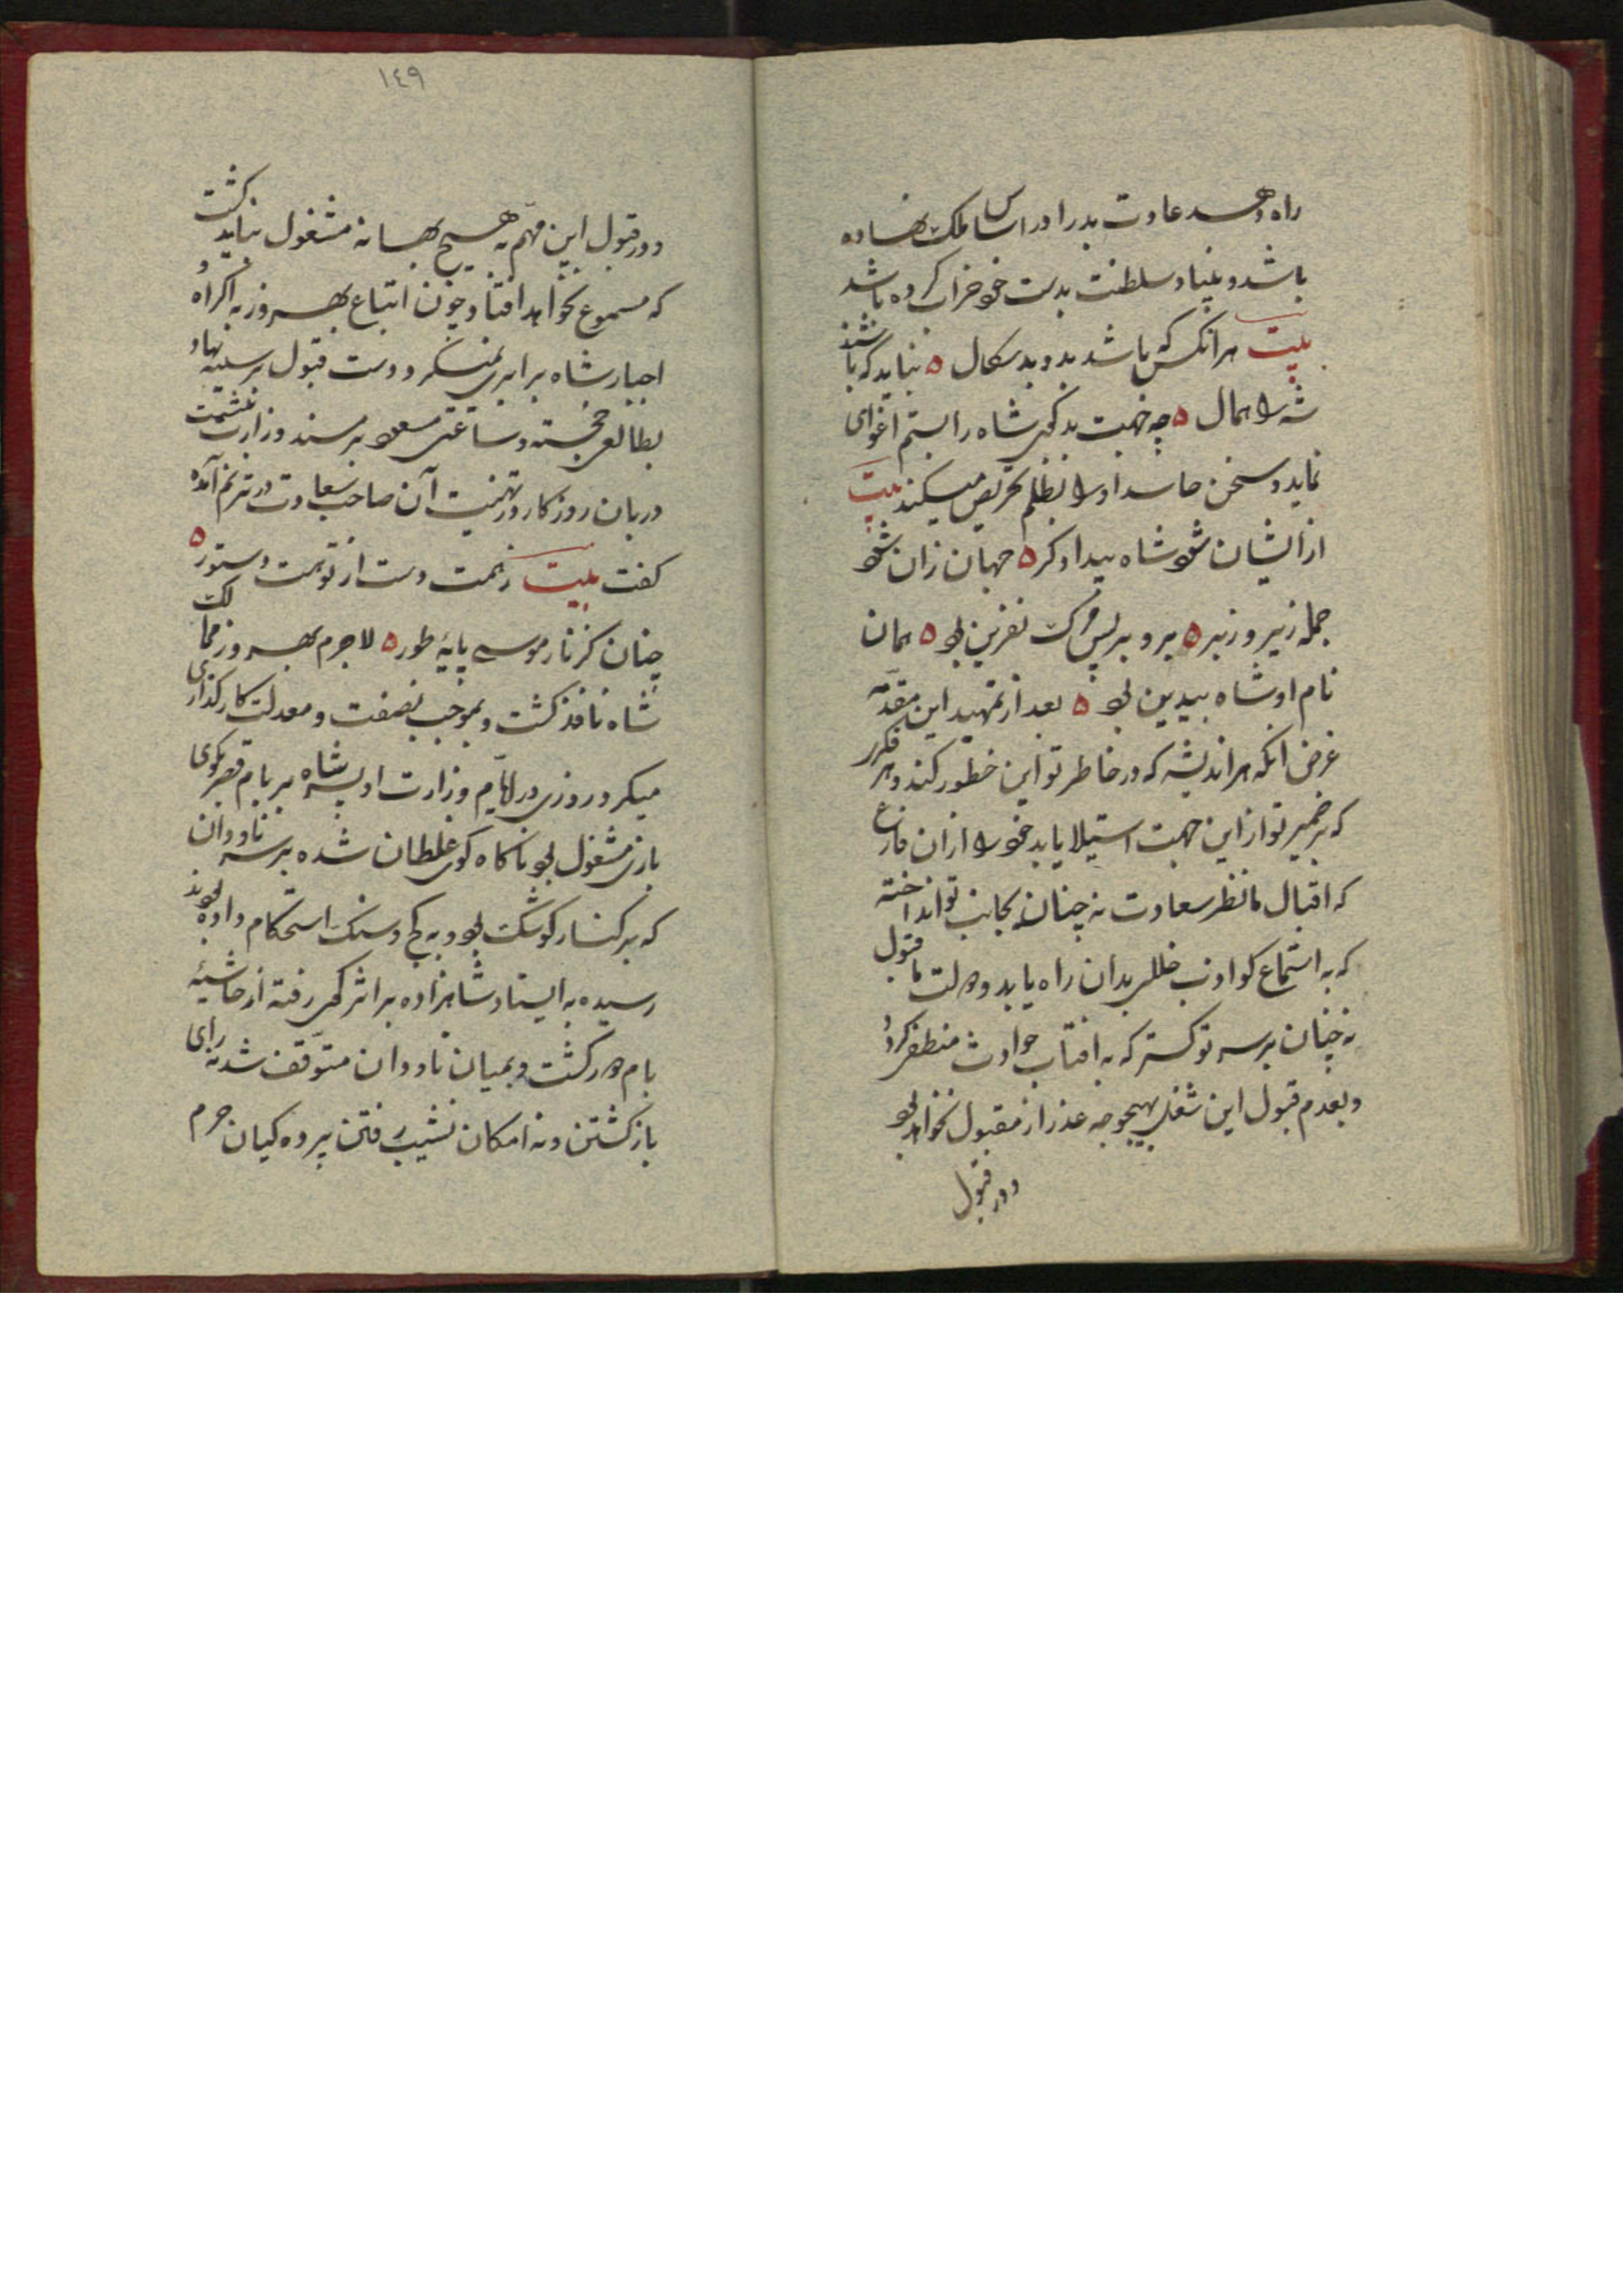 راه دهد عادت بد را در اساس ملک نهاده
باشد و بنیاد سلطنت بدست خود خراب کرده باشد
بیت هر انکس که باشد بد و بد سکال ٥ نباید که باشد
شه را همال ٥ چه خبت بد کهی شاه را بستم اغوای
نماید و سخن حاسد او را بظلم تحریص میکند بیت
از ایشان شود شاه بیدادکر ٥ جهان زان شود
جمله زیر و زبر ٥ برو بر پس مرک نفرین بود ٥ همان
نام او شاه بیدین بود ٥ بعد از تمهید این مقدمه
غرض انکه هر اندیشه که در خاطر تو این خطور کند و هر فکر
که بر ضمیر تو از این جهت استیلا یابد خود را از ان فارغ
که اقبال ما نظر سعادت نه چنان بجانب تو انداخته
که به استماع کواذب خللی بدان راه یابد و دولت ما قبول
نه چنان بر سر تو کسترد که به افتاب حوادث منطفی کردد
و بعدم قبول این شغل بهیچوجه عذر از مقبول نخواهد بود
و در قبول
١٤٩
و در قبول این مهم به هیچ بهانه مشغول نباید کشت
که مسموع نخواهد افتاد و چون اتباع بهروز به اکراه و
اجبار شاه برابری نمیکرد دست قبول بر سینه نهاد
بطالعی خجسته و ساعتی مسعود بر مسند وزارت نشست
دربان روزکار در تهنیت آن صاحب سعادت در ترنم آمده
کفت بیت زهمت دست از توهمت دستور ٥
چنان کز نار موسی پایهٔ طور ٥ لاجرم بهروز ممالک
شاه نافذ کشت و بموجب نصفت و معدلت کارکذاری
میکرد روزی در ایام وزارت او پسر شاه بر بام قصر بکوی
بازی مشغول بود ناکاه کوی غلطان شده بر سر ناودان
که بر کنار کوشک بود و به کج و سنک استحکام داده بودند
رسیده به ایستاد شاهزاده بر اثر کوی رفته از حاشیهٔ
بام در کشت و بمیان ناودان متوقف شد نه رای
بازکشتن و نه امکان نشیب رفتن پرده کیان حرم